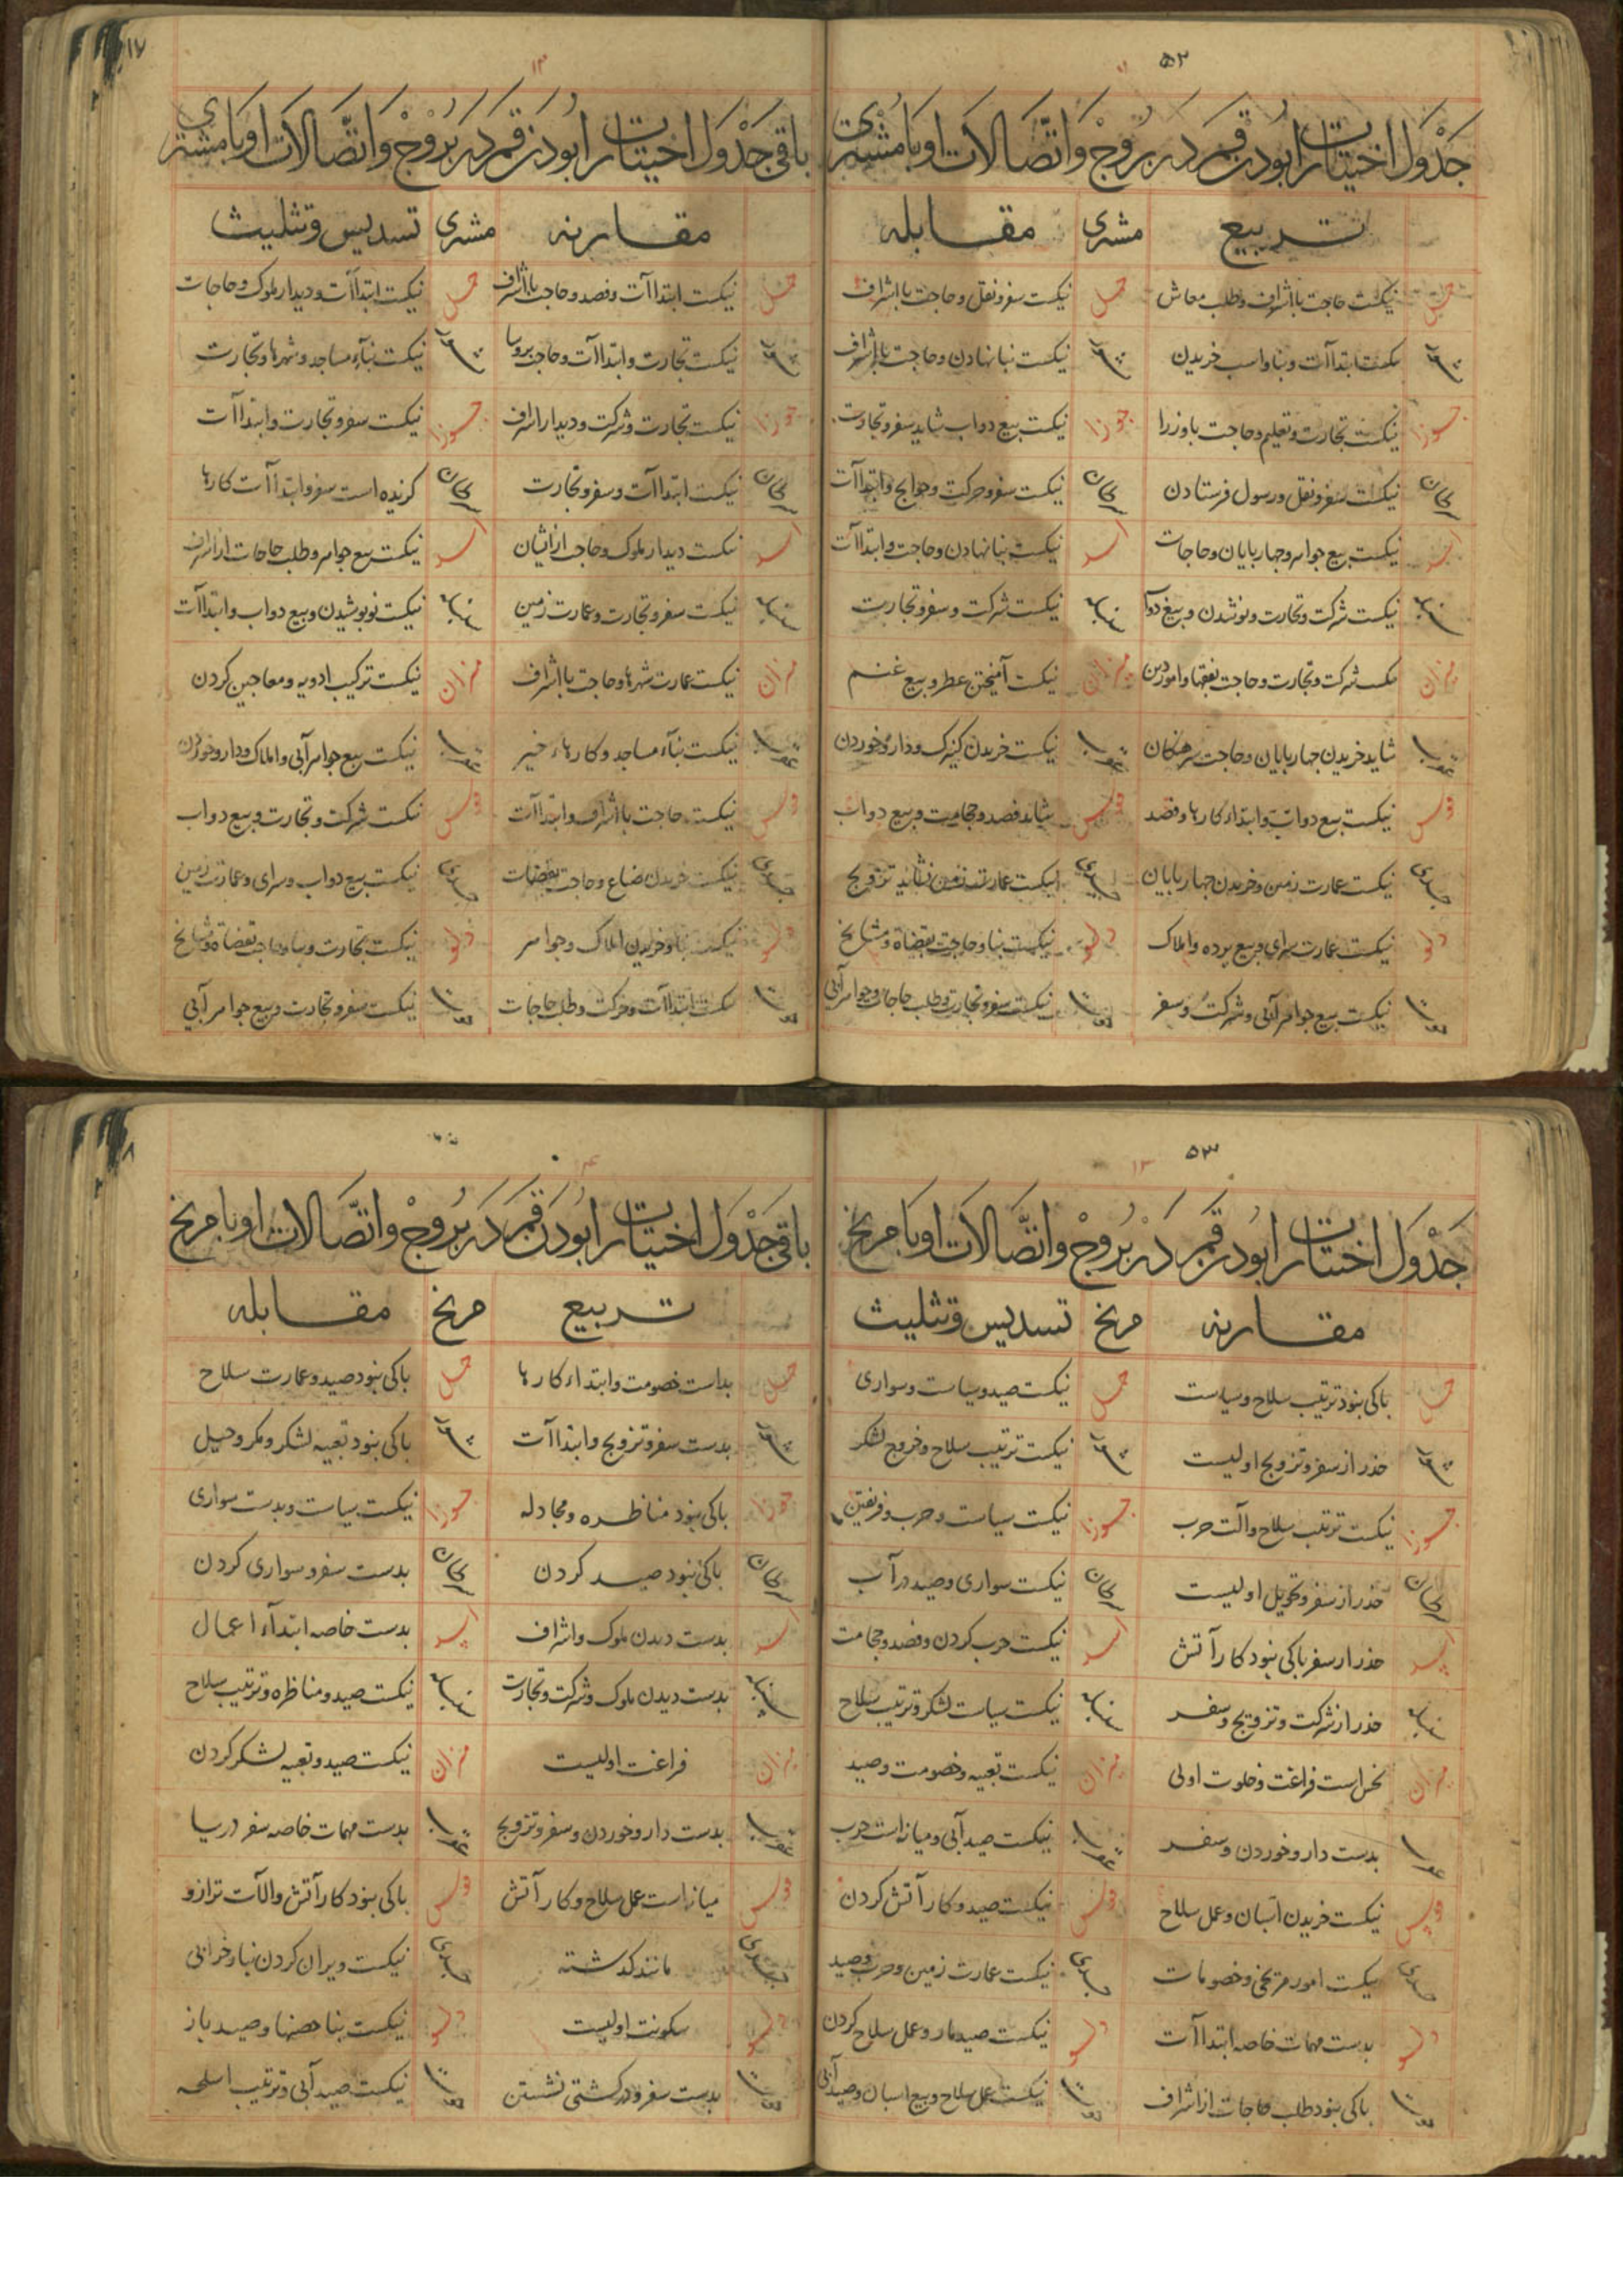 ۵۲
جَدْوَل اختیارات ابُودن قمَر دَر بُرُوجْ وَاتّصَالاَت او بَا مُشْتَرِی
تربیع مشتری مقابله
حمل نیکست حاجت باشراف وطلب معاش حمل نیکست سفر ونقل وحاجت باشراف
ثور نیکست ابتداآت وبنا واسب خریدن ثور نیکست بنا نهادن وحاجت باشراف
جوزا نیکست تجارت وتعلیم وحاجت باوزرا جوزا نیکست بیع دواب شاید سفر وتجارت
سرطان نیکست سفر ونقل ورسول فرستادن سرطان نیکست سفر وحرکت وحوایج وابتداآت
اسد نیکست بیع جواهر وچهارپایان وحاجات اسد نیکست بنا نهادن وحاجت وابتداآت
سنبله نیکست شرکت وتجارت ونوشدن وبیع دواب سنبله نیکست شرکت وسفر وتجارت
میزان نیکست شرکت وتجارت وحاجت بفقها وامور دین میزان نیکست آمیختن عطر وبیع غنم
عقرب شاید خریدن چهارپایان وحاجت سرهنکان عقرب نیکست خریدن کنیزک ودارو خوردن
قوس نیکست بیع دواب وابتداء کارها وفصد قوس شاید فصد وحجامت وبیع دواب
جدی نیکست عمارت زمین وخریدن چهارپایان جدی نیکست عمارت زمین نشاید تزویج
دلو نیکست عمارت سرای وبیع برده واملاک دلو نیکست بنا وحاجت بقضاة ومشایخ
حوت نیکست بیع جواهر آبی وشرکت وسفر حوت نیکست سفر وتجارت وطلب حاجات وجواهر آبی
۱۷
باقی جَدْوَل اختیارات ابُودن قمَر دَر بُرُوجْ وَاتّصَالاَت او بَا مشتری
مقارنه مشتری تسدیس وتثلیث
حمل نیکست ابتداآت وفصد وحاجت باشراف حمل نیکست ابتداآت ودیدار ملوک وحاجات
ثور نیکست تجارت وابتداآت وحاجت ثور نیکست بنآء مساجد وشهرها وتجارت
جوزا نیکست تجارت وشرکت ودیدار اشراف جوزا نیکست سفر وتجارت وابتداآت
سرطان نیکست ابتداآت وسفر وتجارت سرطان کزیده است سفر وابتداآت کارها
اسد نیکست دیدار ملوک وحاجت ازایشان اسد نیکست بیع جواهر وطلب حاجات ازاشراف
سنبله نیکست سفر وتجارت وعمارت زمین سنبله نیکست نو پوشیدن وبیع دواب وابتداآت
میزان نیکست عمارت شهرها وحاجت باشراف میزان نیکست ترکیب ادویه ومعاجین کردن
عقرب نیکست بنآء مساجد وکارهاء خیر عقرب نیکست بیع جواهر آبی واملاک ودارو خوردن
قوس نیکست حاجت باشراف وابتداآت قوس نیکست شرکت وتجارت وبیع دواب
جدی نیکست خریدن ضیاع وحاجت بقضات جدی نیکست بیع دواب وسرای وعمارت زمین
دلو نیکست بنا وخریدن املاک وجواهر دلو نیکست تجارت وبنا وحاجت بقضاة ومشایخ
حوت نیکست ابتداآت وحرکت وطلب حاجات حوت نیکست سفر وتجارت وبیع جواهر آبی
۵۳
جَدْوَل اختیارات ابُودن قمَر دَر بُرُوجْ وَاتّصَالاَت او بَا مریخ
مقارنه مریخ تسدیس وتثلیث
حمل باکی نبود ترتیب سلاح وسیاست حمل نیکست صید وسیاست وسواری
ثور حذر از سفر وتزویج اولیست ثور نیکست ترتیب سلاح وخروج لشکر
جوزا نیکست ترتیب سلاح وآلت حرب جوزا نیکست سیاست وحرب
سرطان حذر از سفر وتحویل اولیست سرطان نیکست سواری وصید درآب
اسد حذر از سفر باکی نبود کار آتش اسد نیکست حرب کردن وفصد وحجامت
سنبله حذر از شرکت وتزویج وسفر سنبله نیکست سیاست لشکر وترتیب سلاح
میزان نحس است فراغت وخلوت اولی میزان نیکست تعبیه وخصومت وصید
عقرب بدست دارو خوردن وسفر عقرب نیکست صید آبی ومیانه است حرب
قوس نیکست خریدن اسبان وعمل سلاح قوس نیکست صید وکار آتش کردن
جدی نیکست امور مریخی وخصومات جدی نیکست عمارت زمین وحرب وصید
دلو بدست مهمات خاصه ابتداآت دلو نیکست صید مار وعمل سلاح کردن
حوت باکی نبود طلب حاجات ازاشراف حوت نیکست عمل سلاح وبیع اسبان وصید آبی
باقی جَدْوَل اختیارات ابُودن قمَر دَر بُرُوجْ وَاتّصَالاَت او با مریخ
تربیع مریخ مقابله
حمل بداست خصومت وابتداء کارها حمل باکی نبود صید وعمارت سلاح
ثور بدست سفر وتزویج وابتداآت ثور باکی نبود تعبیه لشکر ومکر وحیل
جوزا باکی نبود مناظره ومجادله جوزا نیکست سیاست وبدست سواری
سرطان باکی نبود صید کردن سرطان بدست سفر وسواری کردن
اسد بدست دیدن ملوک واشراف اسد بدست خاصه ابتدآء اعمال
سنبله بدست دیدن ملوک وشرکت وتجارت سنبله نیکست صید ومناظره وترتیب سلاح
میزان فراغت اولیست میزان نیکست صید وتعبیه لشکر کردن
عقرب بدست دارو خوردن وسفر وتزویج عقرب بدست مهمات خاصه سفر دریا
قوس میانه است عمل سلاح وکار آتش قوس باکی نبود کار آتش وآلات ترازو
جدی مانند کذشته جدی نیکست ویران کردن بنا وخرابی
دلو سکونت اولیست دلو نیکست بنا حصنها وصید باز
حوت بدست سفر ودر کشتی نشستن حوت نیکست صید آبی وترتیب اسلحه